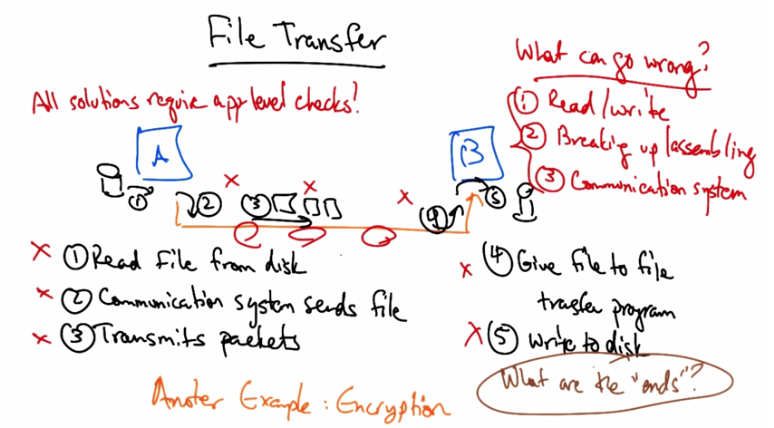 File Transfer
What can go wrong?
All solutions require app level checks!
① Read/write
② Breaking up/assembling
③ Communication system
A
B
①
②
③
④
⑤
① Read File from disk
② Communication system sends file
③ Transmits packets
④ Give file to file
trasfer program
⑤ Write to disk
What are the "ends"?
Anoter Example: Encryption